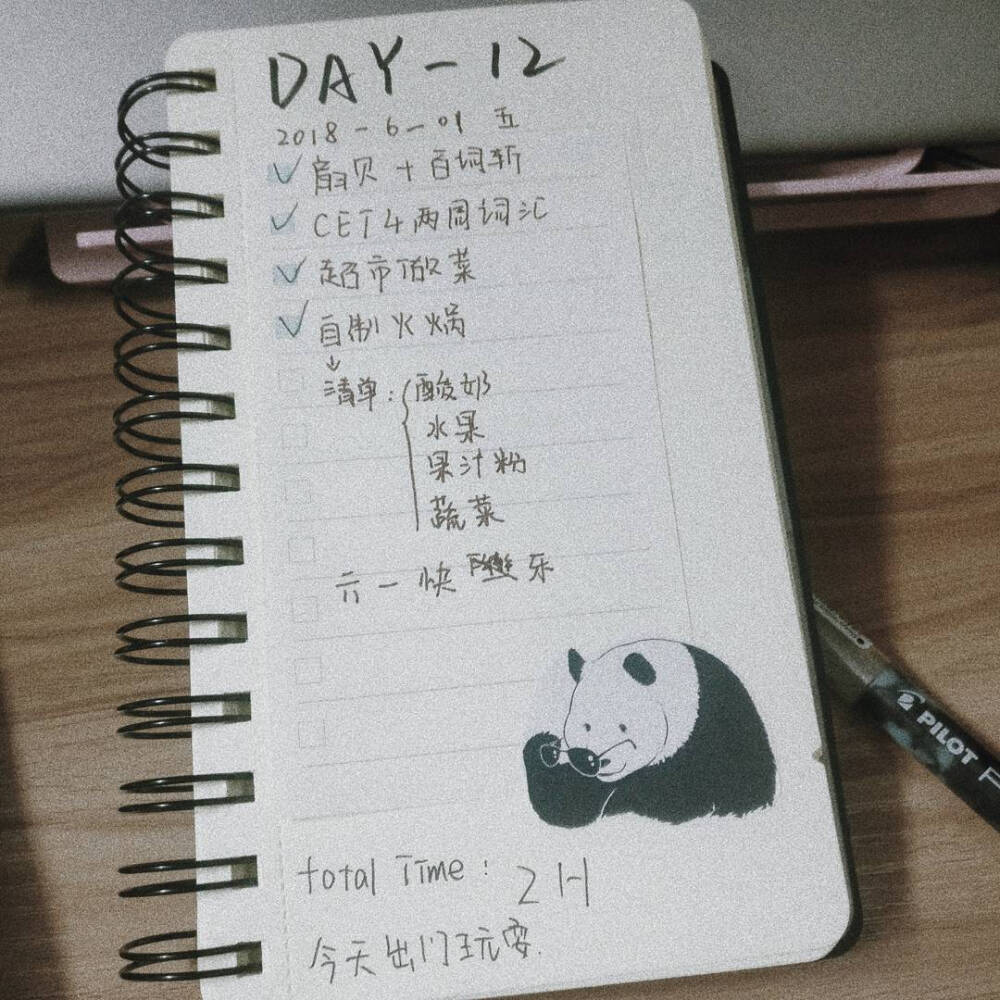 DAY-12
2018-6-01 五
扇贝+百词斩
CET4两周词汇
超市做菜
自制火锅
↓
清单:{酸奶
水果
果汁粉
蔬菜
六一快乐
total Time: 2H
今天出门玩耍.
PILOT